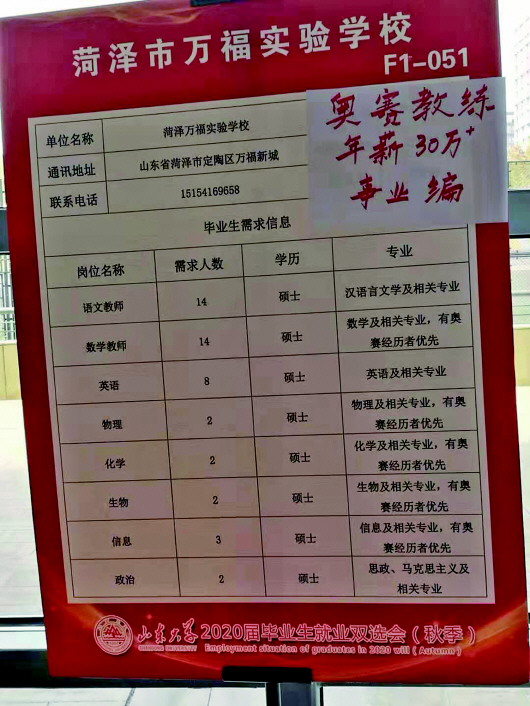 菏泽市万福实验学校
F1-051
奥赛教练
年薪30万+
事业编
单位名称 菏泽万福实验学校
通讯地址 山东省菏泽市定陶区万福新城
联系电话 15154169658
毕业生需求信息
岗位名称 需求人数 学历 专业
语文教师 14 硕士 汉语言文学及相关专业
数学教师 14 硕士 数学及相关专业，有奥
赛经历者优先
英语 8 硕士 英语及相关专业
物理 2 硕士 物理及相关专业，有奥
赛经历者优先
化学 2 硕士 化学及相关专业，有奥
赛经历者优先
生物 2 硕士 生物及相关专业，有奥
赛经历者优先
信息 3 硕士 信息及相关专业，有奥
赛经历者优先
政治 2 硕士 思政、马克思主义及
相关专业
山东大学 2020届毕业生就业双选会（秋季）
SHANDONG UNIVERSITY Employment situation of graduates in 2020 will ( Autumn )